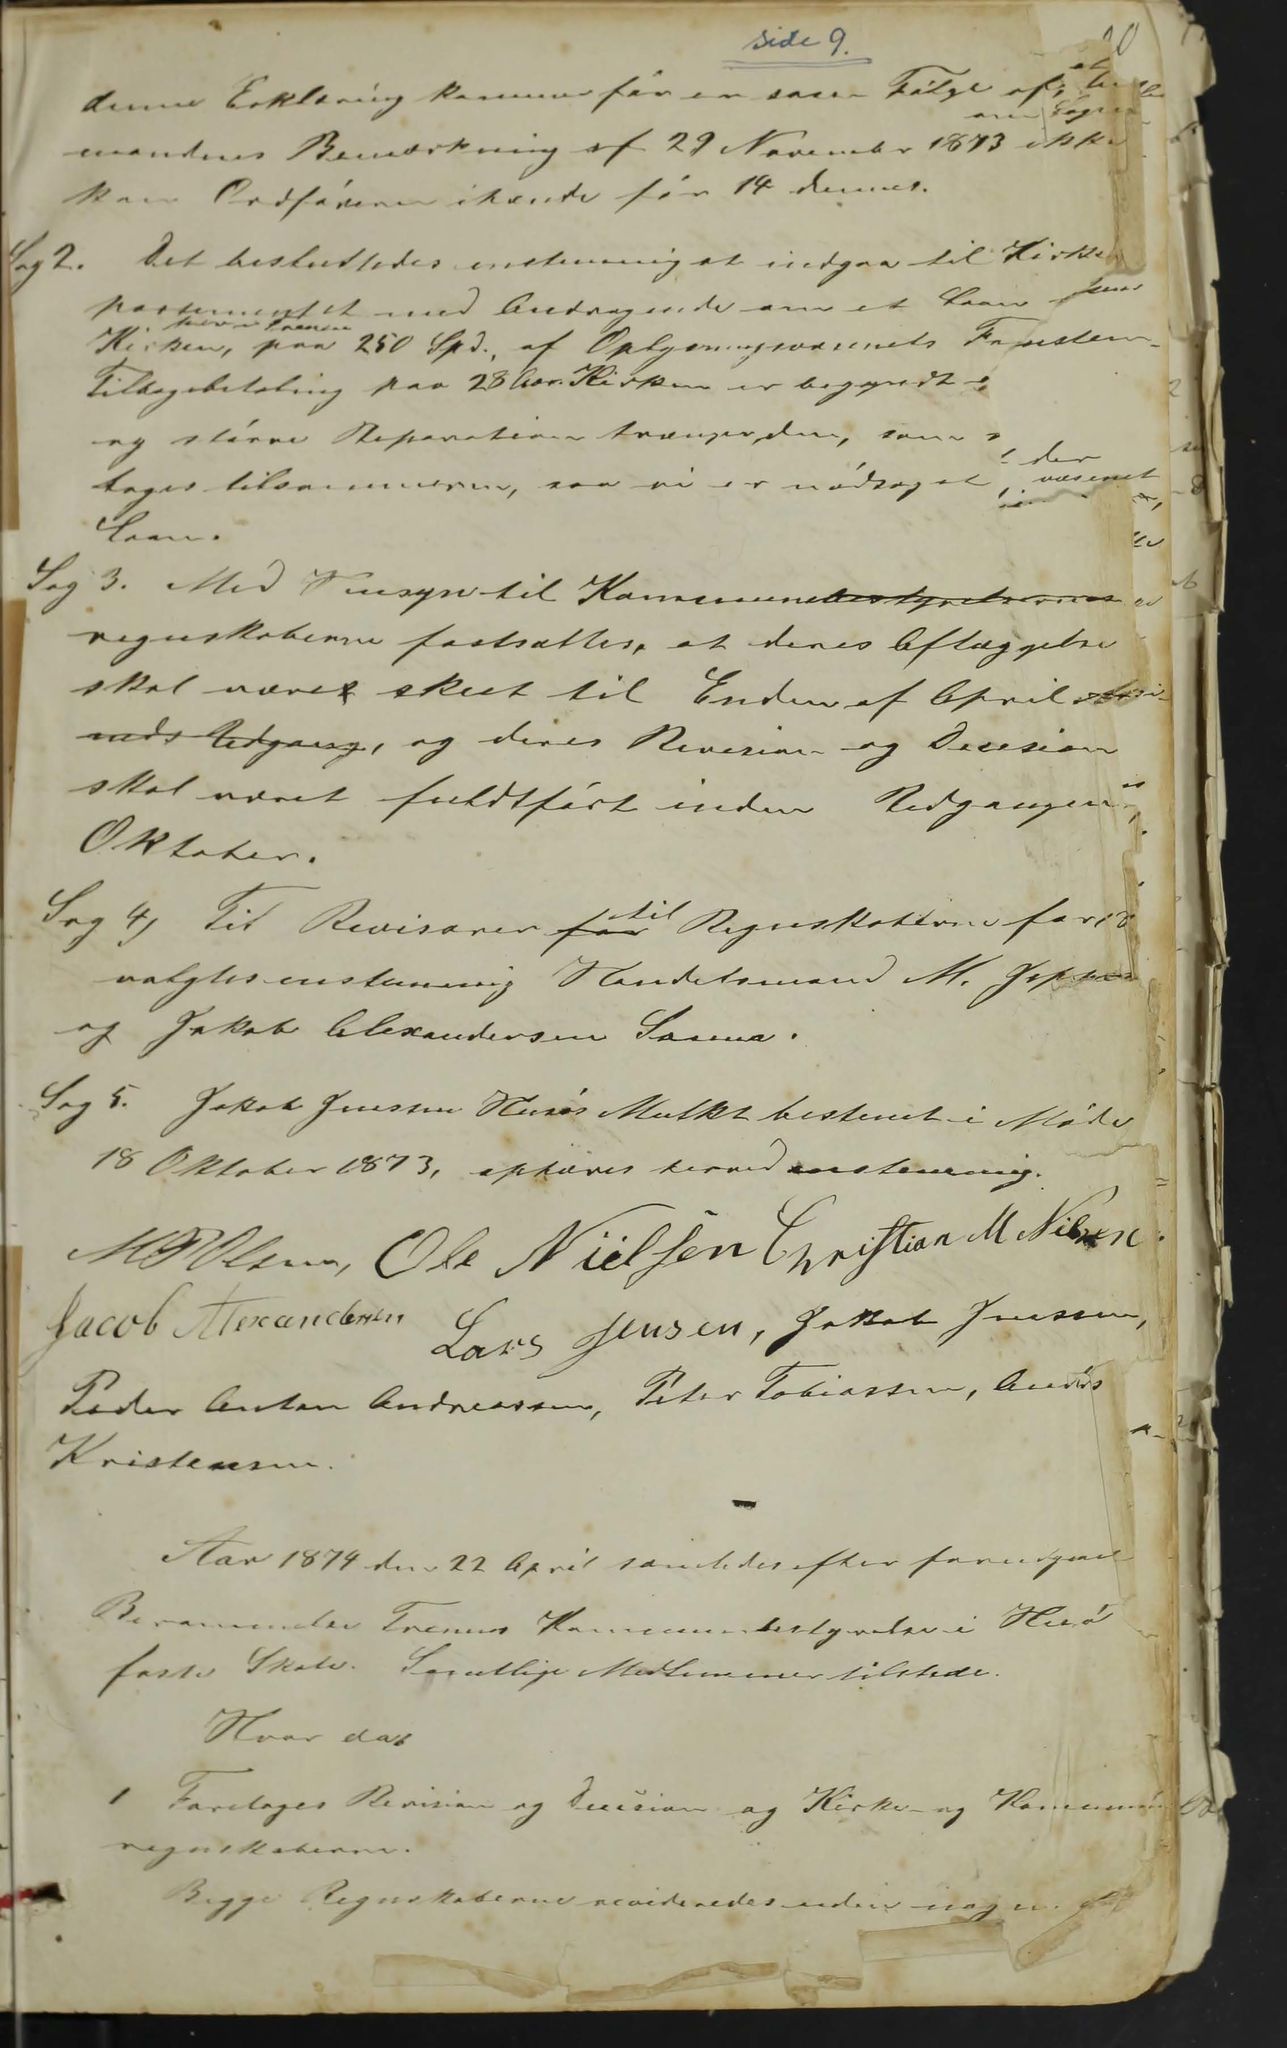 side 9.
denne Erklæring kommer før en saadan Følge af, at
mandens Bemærkning af 29 November 1873 ikke
kom Ordføreren ihænde før 14 dennes.
Sag 2. Det besluttedes enstemmig at indgaa til Kirke
partementet med Andragende om et Laan
Kirken, her i Trænen paa 250 Spd., af Oplysningsvæsenets Fond
Tilbagebetaling paa 28 Aar. Kirken er begyndt
og större Reparationer trænger den, som
tages tilsammen, saa vi er nödsaget der
væsenet
Laan.
Sag 3. Med Hensyn til Kommunebestyrelsernes
regnskaberne fastsattes, at deres Aflæggelse
skal være skeet til Enden af April
neds Udgang, og deres Revision og Decision
skal været fuldtført inden Udgangen
Oktober.
Sag 4) Til Revisorer for til Regnskaberne for
valgtes enstemmig Handelsmand M.
og Jakob Alexandersen Sanna.
Sag 5. Jakob Jenssen Husøs Mulkt bestemt i Møde
18 Oktober 1873, ophæves herved enstemmig.
Olsen, Ole Nielsen Christian M Nielsen
Jacob Alexandersen Lars Jensen, Jakob Jenssen,
Peder Anton Andreassen, Peter Tobiassen, Anders
Kristensen.
Aar 1874 den 22 April samledes efter foregaaende
Berammelse Trænens Kommunebestyrelse i Husø
faste Skole. Samtlige Medlemmer tilstede.
Hvor da
1 Foretoges Revision og Decision og Kirke- og Kommune
regnskaberne.
Begge Regnskaberne revideredes uden nogen